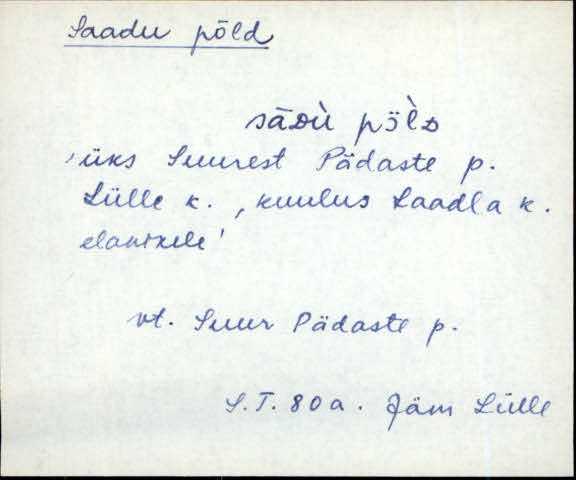 Saadu põld
sādù pȭlD
'üks Suurest Pädaste p.
Lülle k., kuulus Laadla k.
elanikele'
vt. Suur Pädaste p.
S.T. 80 a. Jäm Lülle